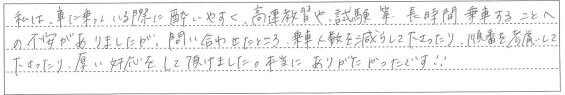 私は、車に乗っている際に酔いやすく、高速教習や、試験等 長時間 乗車することへ
の不安がありましたが、問い合わせたところ 乗車人数を減らして下さったり、順番を考慮して
下さったり、厚い対応をして頂けました。本当に ありがたかったです!!